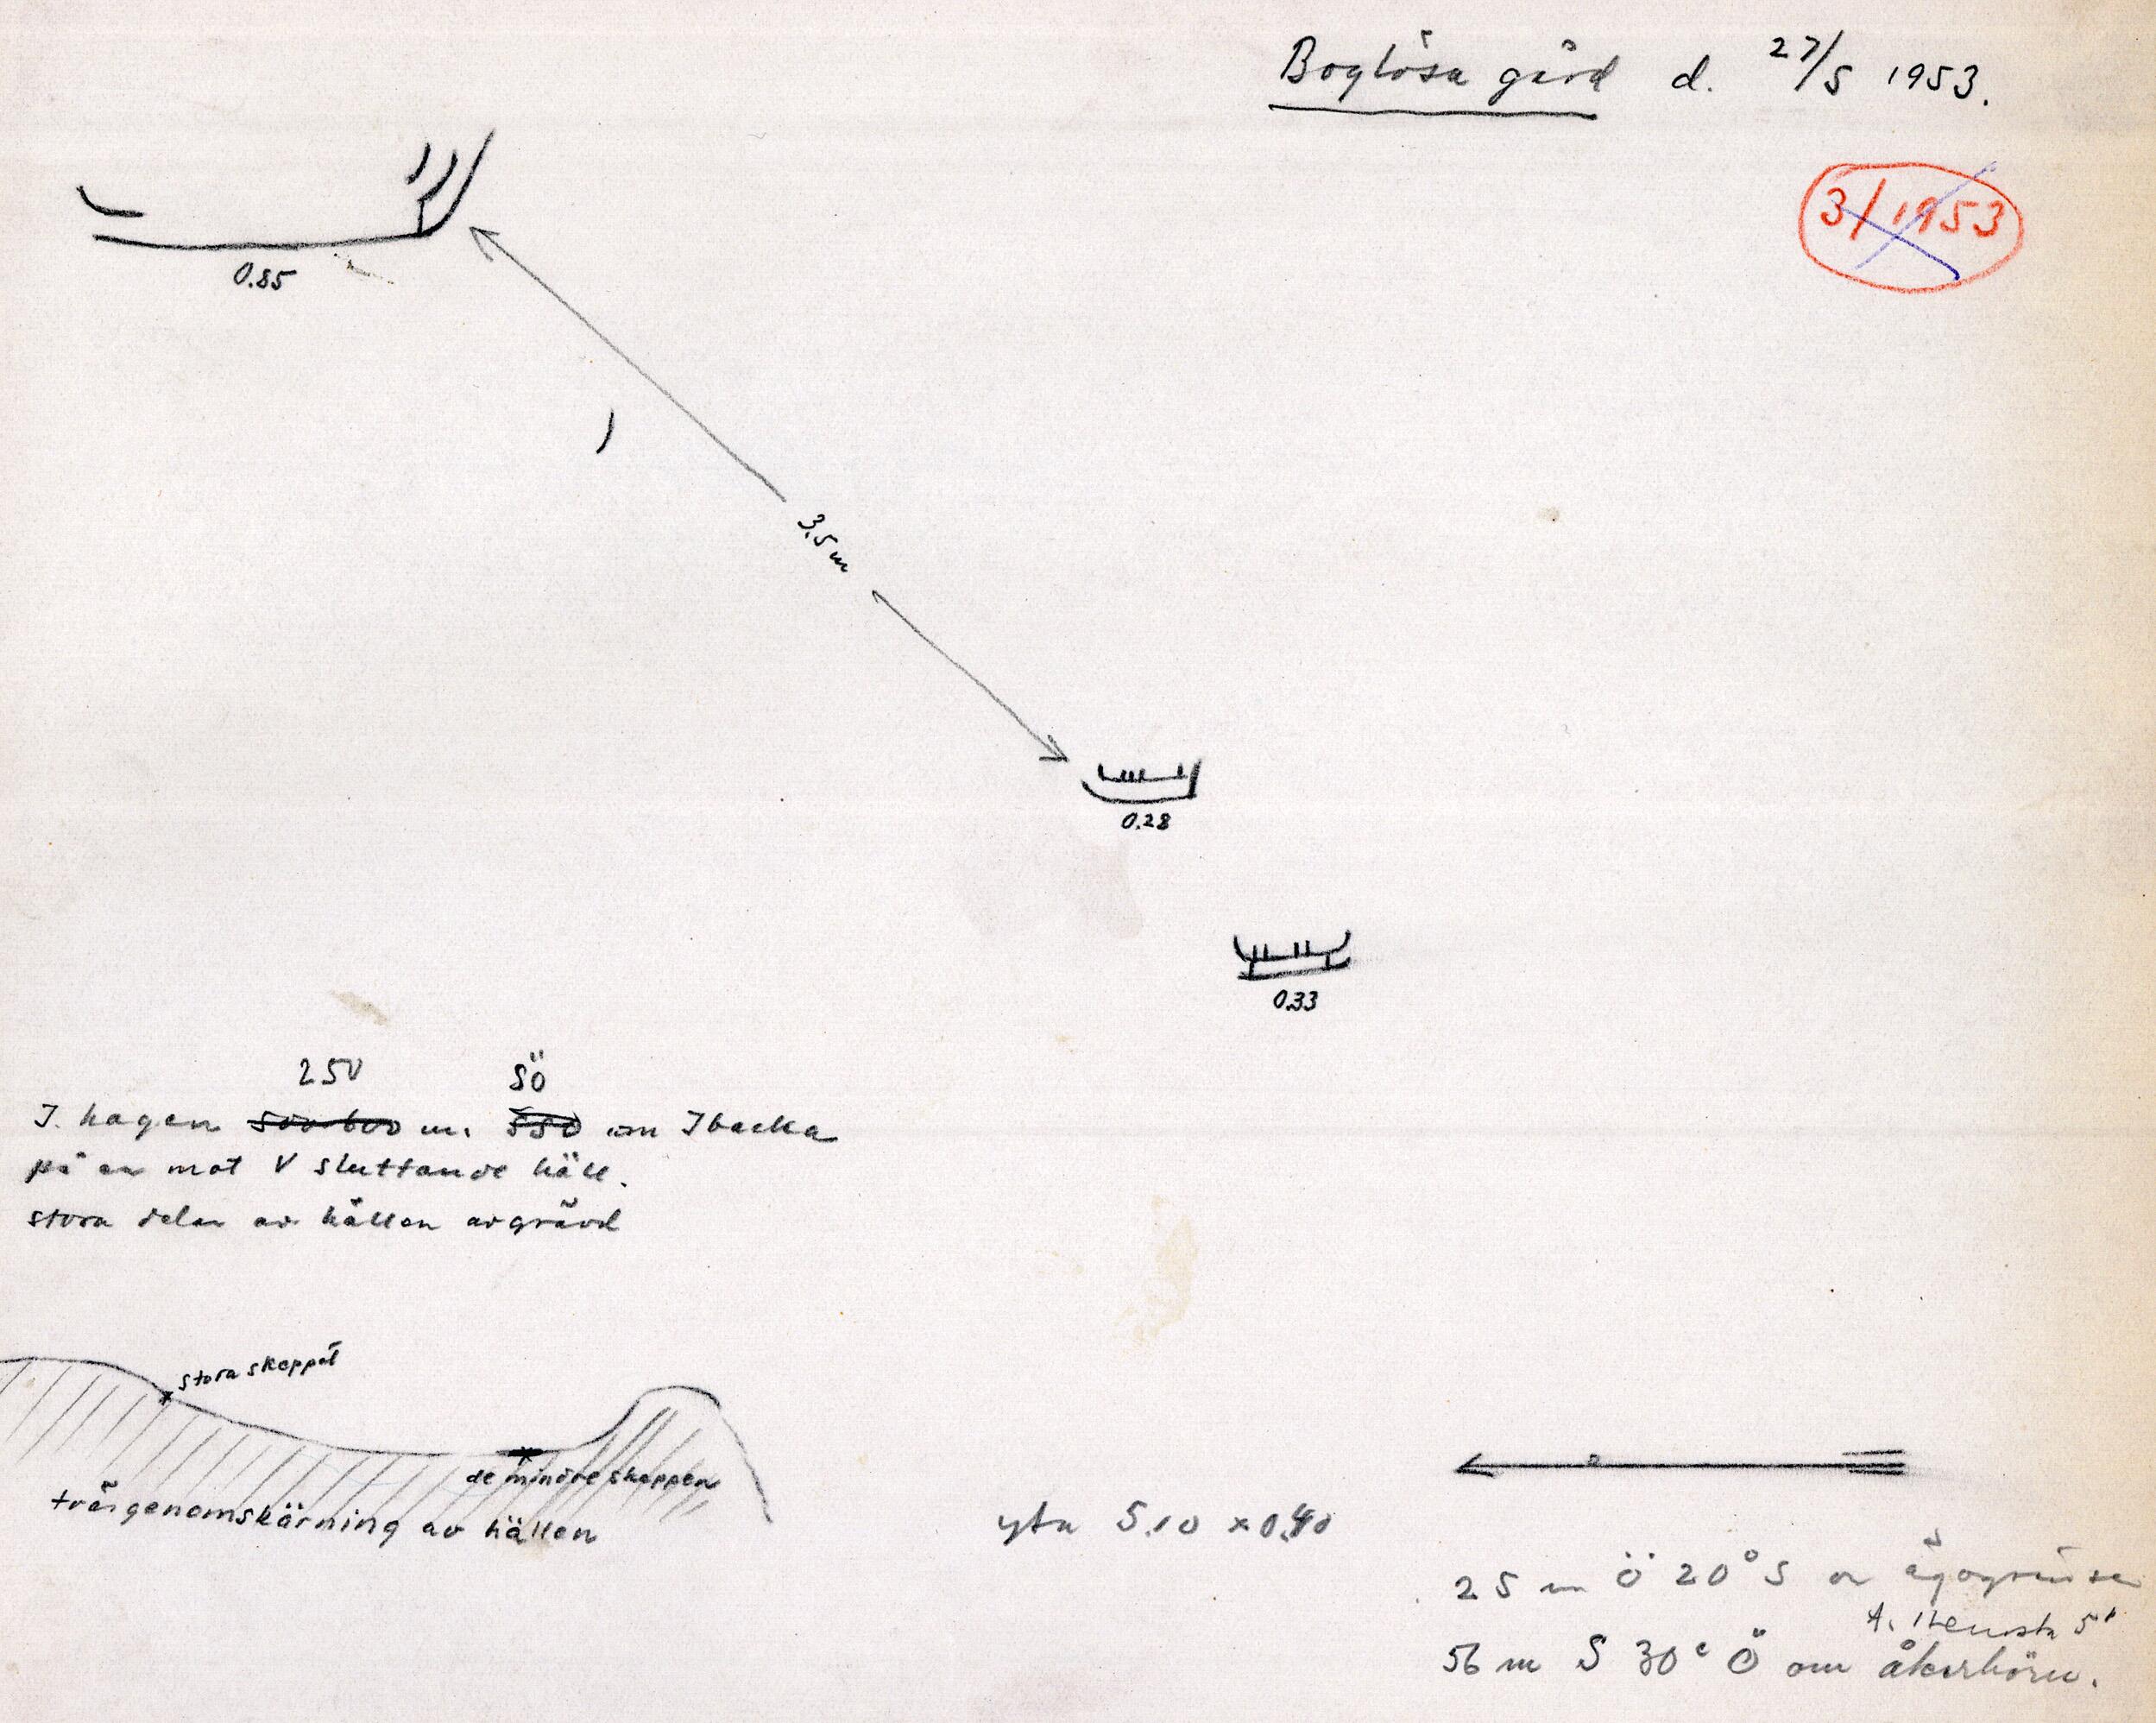 Boglösa gård d. 27/5 1953.
3/1953
0.85
3.5 m
0.28
0.33
250 SÖ
I hagen 500-600 m. SSO om Ibacka
på en mot V sluttande häll.
stora delar av hällen avgrävd
stora skeppet
de mindre skeppen
tvärgenomskärning av hällen
yta 5.10 x 0.40
25 m Ö 20° S om ägogräns
A. 5¹
56 m S 30° Ö om åkerhörn.